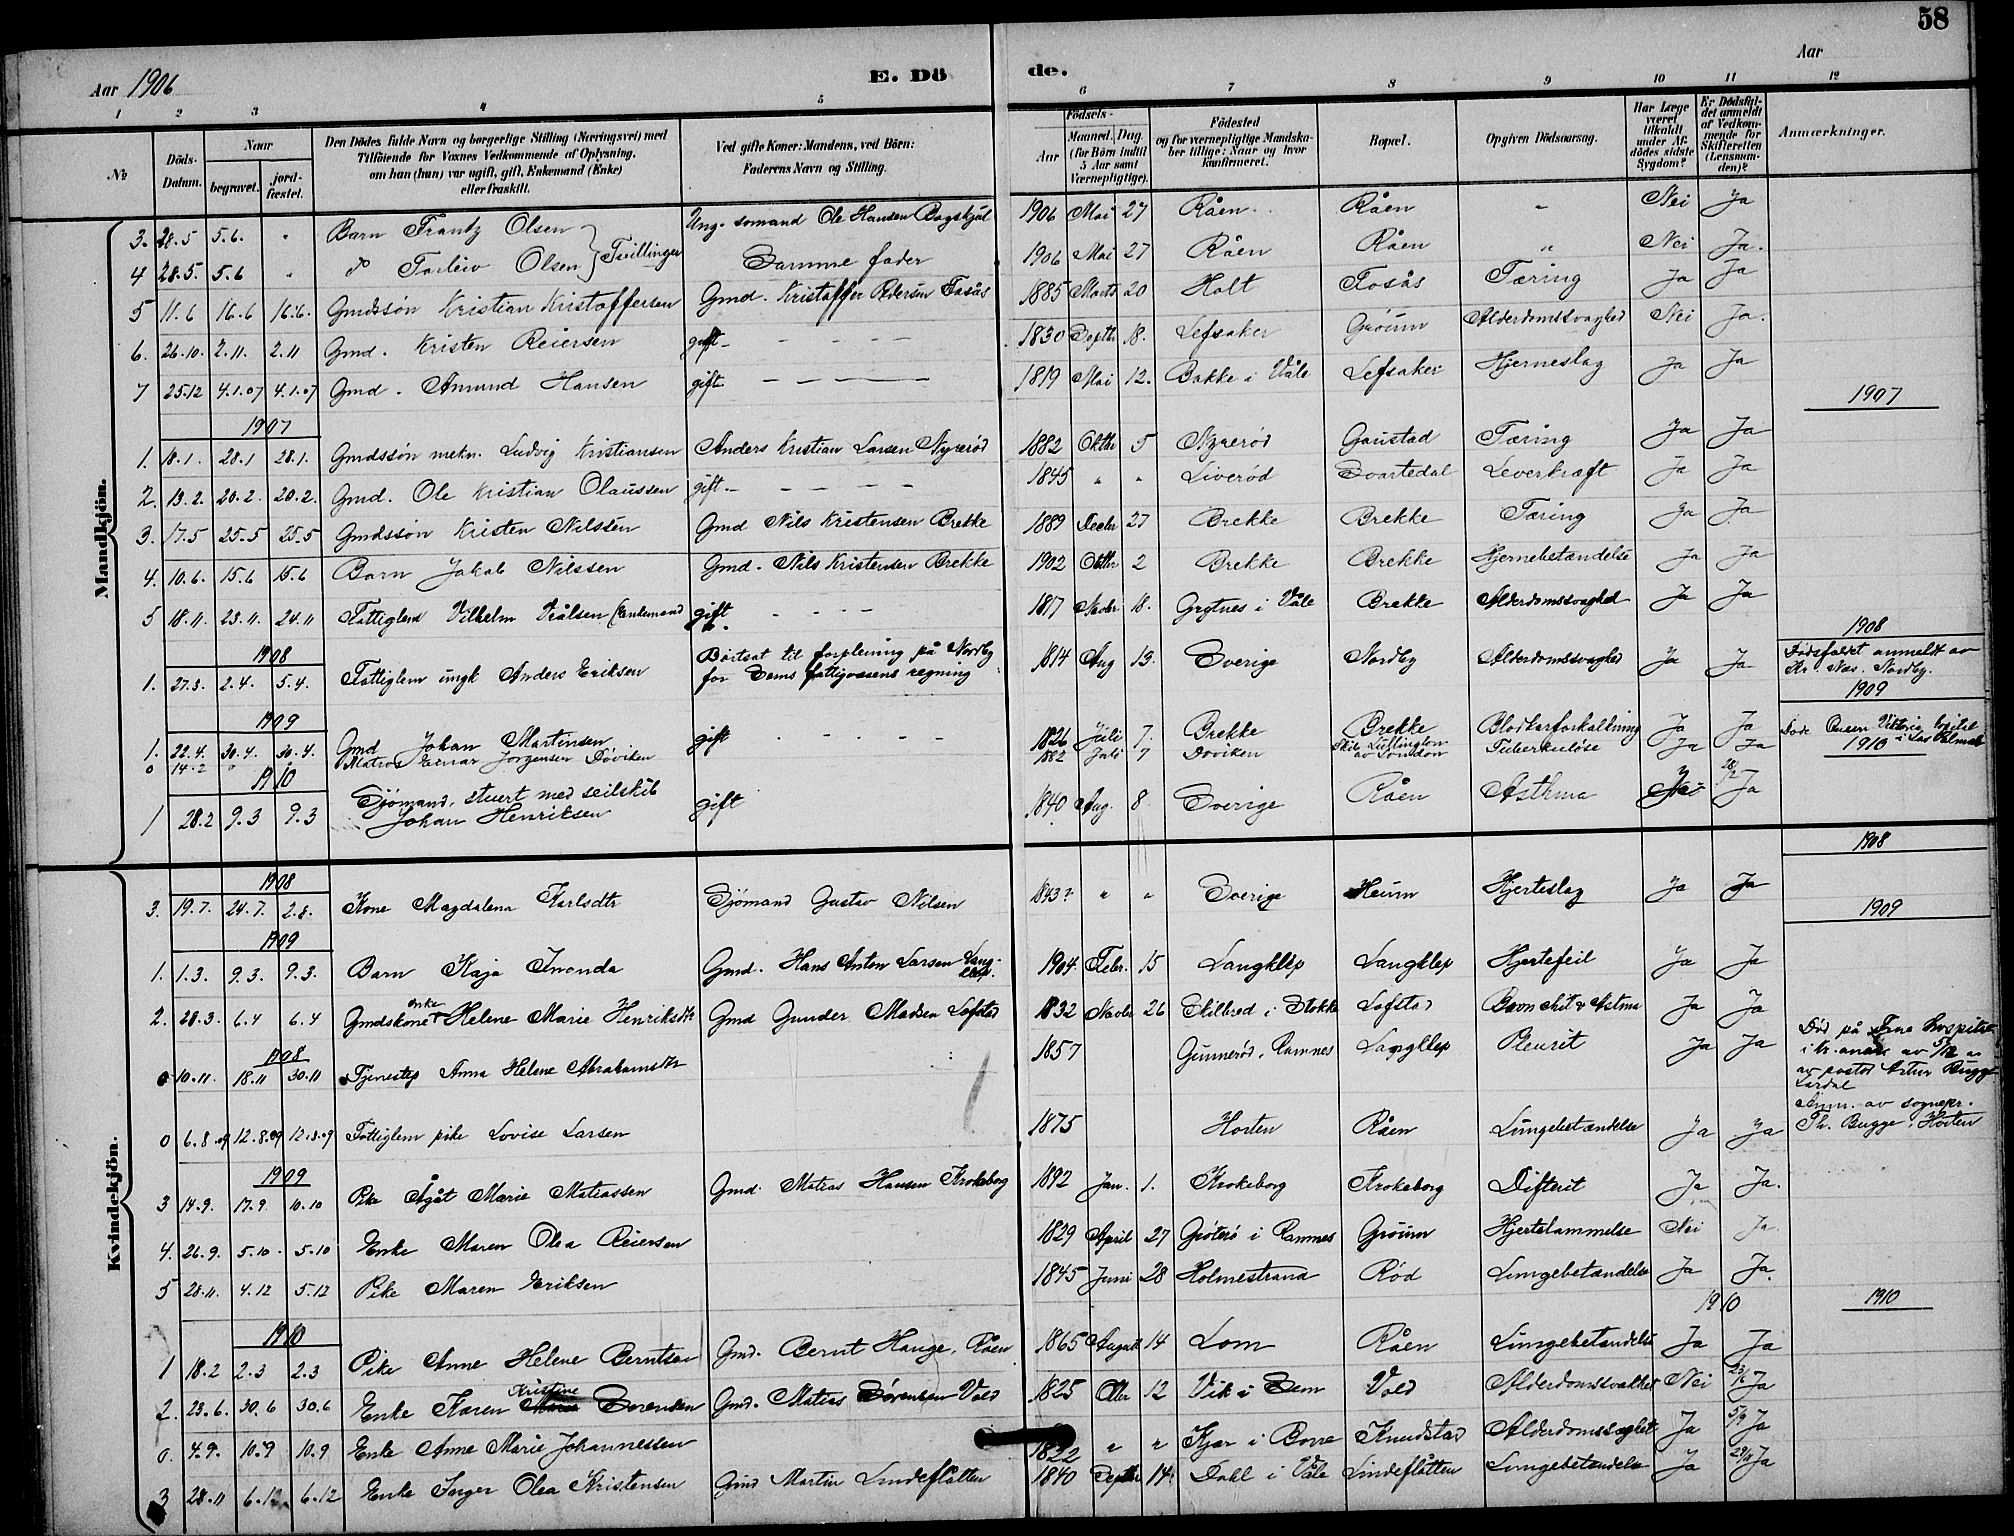 58
Aar 1906 E. Dö de. Aar
1 2 3 4 5 6 7 8 9 10 11 12
No
Döds-Datum.
Naar
begravet.
jord-fæstet.
Den Dödes fulde Navn og borgerlige Stilling (Næringsvei) med
Tilföiende for Voxnes Vedkommende af Oplysning,
om han (hun) var ugift, gift, Enkemand (Enke)
eller fraskilt.
Ved gifte Koner: Mandens, ved Börn:
Faderens Navn og Stilling.
Födsels-
Aar
Maaned. Dag.
(for Börn indtil
5 Aar samt
Værnepligtige).
Födested
og for værnepligtige Mandska-
ber tillige: Naar og hvor
konfirmeret.
Bopæl.
Opgiven Dödsaarsag.
Har Læge
været
tilkaldt
under Af-
dödes sidste
Sygdom?
Er Dödsfal-
det anmeldt
af Vedkom-
mende for
Skifteretten
(Lensman-
den)?
Anmærkninger.
Mandkjön.
3. 28.5 5.6. " Barn Frantz Olsen } Tvillinger Ung. sømand Ole Hansen 1906 Mai 27 Råen Råen " Nei Ja
4 28.5. 5.6 " do Torleiv Olsen Samme fader 1906 Mai 27 Råen Råen " Nei Ja.
5 11.6 16.6 16.6. Gmdssøn Kristian Kristoffersen Gmd. Kristoffer Pedersen Fosås 1885 Marts 20 Holt Fosås Tæring Ja Ja
6. 26.10. 2.11. 2.11 Gmd. Kristen Reiersen gift - - - - 1830 Septbr 18. Lefsaker Grøum Alderdomssvaghed Nei Ja.
7 25.12 4.1.07 4.1.07 Gmd. Amund Hansen gift - - - - 1819 Mai 12. Bakke i Våle Lefsaker Hjerneslag Ja Ja
1907 1907
1. 18.1. 28.1 28.1. Gmdssøn mekn. Ludvig Kristiansen Anders Kristian Larsen Nyrerød 1882 Oktbr 5 Nyrerød Gaustad Tæring Ja Ja
2. 13.2. 20.2. 20.2. Gmd. Ole Kristian Olaussen gift - - - - 1845 " " Liverød Svartedal Leverkræft Ja Ja
3. 17.5 25.5 25.5 Gmdssøn Kristen Nilssen Gmd Nils Kristensen Brekke 1889 Decbr 27 Brekke Brekke Tæring Ja Ja
4. 10.6. 15.6 15.6 Barn Jakob Nilssen Gmd. Nils Kristensen Brekke 1902 Oktbr 2 Brekke Brekke Hjernebetændelse Ja Ja
5 18.11. 23.11. 24.11 Fattiglem Vilhelm (Enkemand gift - - - 1817 Novbr 18. Grytnes i Våle Brekke Alderdomssvaghed Ja Ja
1908 1908
1. 27.3. 2.4. 5.4. Fattiglem ungk Anders Eriksen Bortsat til forpleining på Nordby
for Sems fattigvæsens regning 1814 Aug 13. Sverige Nordby Alderdomssvaghed Ja Ja Dødsfaldet anmeldt av
Kr. Næs. Nordby.
1909 1909
1. 22.4. 30.4. 30.4. Gmd Johan Martinsen gift - - - - 1826 Juli 7. Brekke Brekke Blodkarforkalkning Ja Ja
0 14.2 " " Matros Einar Jørgensen Døviken 1882 Juli 7 Døviken Skib Lullington
av London Tuberkuløse Ja Ja Døde Viktoria hospital
i Las Palmas
1910 1910
1 28.2 9.3 9.3 Sjømand, stuert med seilskib
Johan Henriksen gift 1840 Aug. 8. Sverige Råen Asthma Ja 28/2 Ja
Kvindekjön.
1908 1908
3. 19.7. 24.7. 2.8. Kone Magdalena Karlsdtr Sjømand Gustav Nilsen 1843? " " Sverige Heum Hjerteslag Ja Ja
1909 1909
1. 1.3. 9.3. 9.3. Barn Kaja Inonda Gmd. Hans Anton Larsen Lang-
klep. 1904. Febr. 15 Langklep Langklep Hjertefeil Ja Ja
2. 28.3. 6.4 6.4 Gmdskone enke Helene Marie Henriksdtr Gmd Gunder Madsen Lofstad 1832 Novbr 26 Skilbred i Stokke Lofstad Bronkit & Astma Ja Ja
1908
0 10.11. 18.11 30.11 Tjenestep Anna Helene Abrahamsdtr 1857 Gunnerød, Ramnes Langklep Pleurit Ja Ja Død på hospital
i Kr. av 5/12
av pastor Artur Bugge
Lardal
0 6.8.09 12.8.09 12.8.09 Fattiglem pike Lovise Larsen 1875 Horten Råen Lungebetændelse Ja Ja Anm. av sognepr.
Th. Bugge, Horten
1909
3 14.9. 17.9. 10.10 Pike Ågåt Marie Matiassen Gmd. Matias Hansen Krokeborg 1892 Jan. 1. Krokeborg Krokeborg Difterit Ja Ja.
4. 26.9. 5.10. 5.10 Enke Maren Olea Reiersen 1829 April 27 Grøterø i Ramnes Grøum Hjertelammelse Nei Ja
5 28.11. 4.12 5.12 Pike Maren Eriksen 1845 Juni 28 Holmestrand Rød Lungebetændelse Ja Ja.
1910 1910 1910
1 18.2 2.3 2.3 Pike Anne Helene Berntsen Gmd. Bernt Hauge, Råen 1865 August 14 Lom Råen Lungebetændelse Ja Ja
2. 23.6. 30.6 30.6 Enke Karen Kristine Sørensen Gmd. Matias Sørensen Vold 1825 12 Vik i Sem Vold Alderdomssvakhet Nei 23/6 Ja
0. 4.9. 10.9 10.9 Enke Anne Marie Johannessen 1822 " " Kjær i Borre Knudstad Alderdomssvaghet Ja 5/9 Ja
3 28.11 6.12. 6.12 Enke Inger Olea Kristensen Gmd Martin Lindeflåtten 1840 Septbr 14. Dahl i Våle Lindeflåtten Lungebetændelse Ja 29/11 Ja